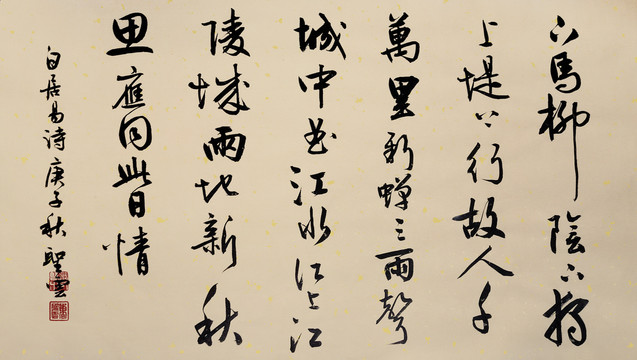 下馬柳陰下獨
上堤上行故人千
萬里新蟬三兩聲
城中曲江水江上江
陵城兩地新秋
思應同此日情
白居易詩庚子秋聖雲